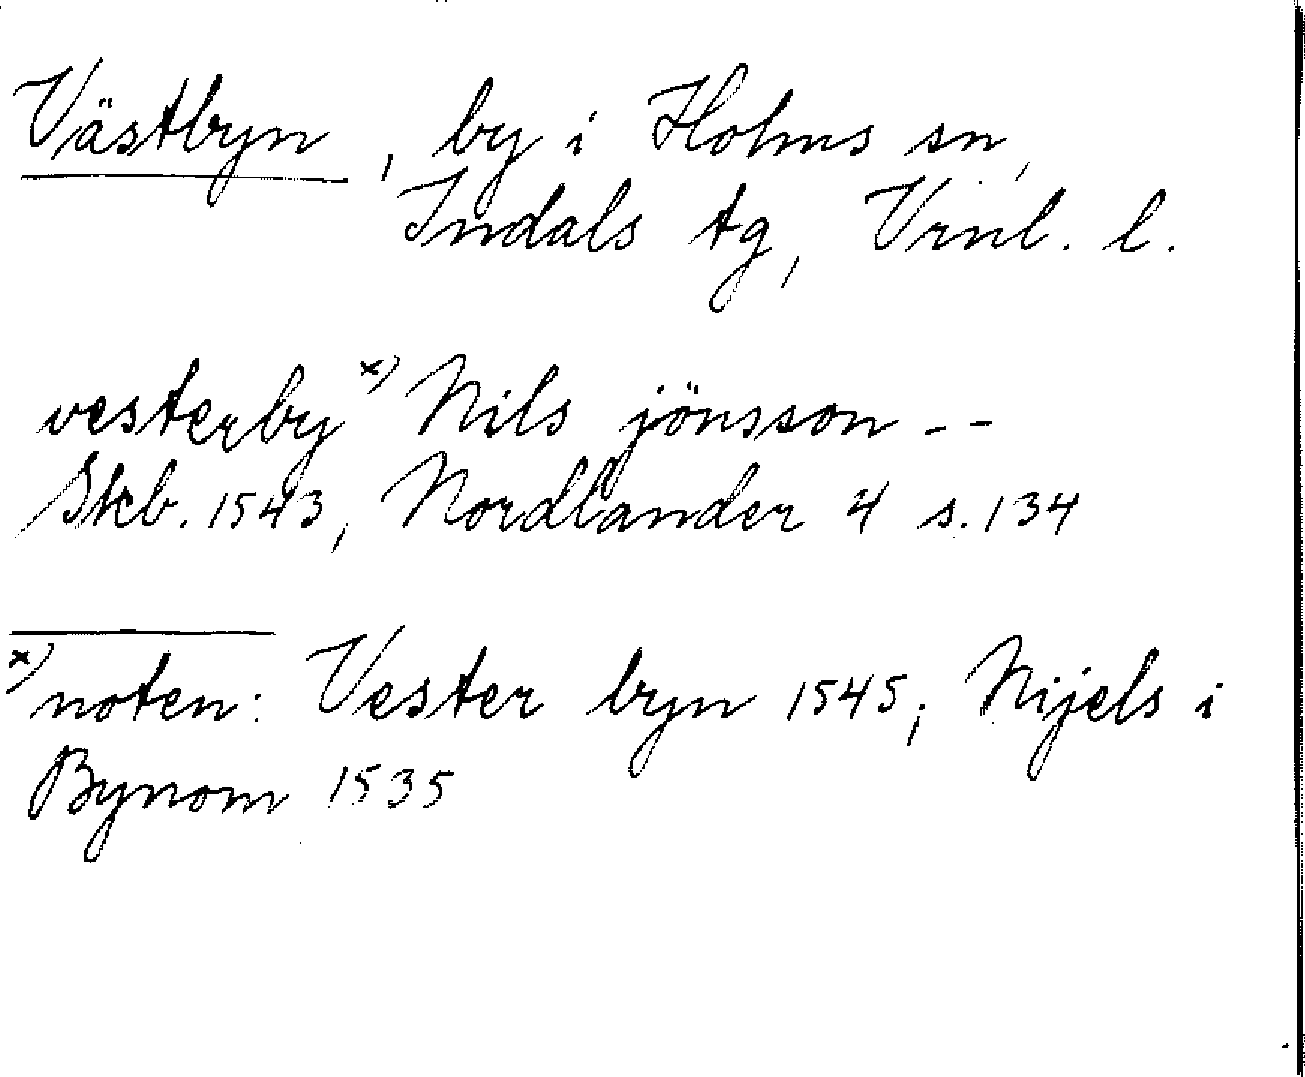 Västbyn, by i Holms sn,
Indals tg, Vrnl. l.
vesterby x) Nils jönsson --
Skb. 1543, Nordlander 4 s. 134
x) noten: Vester byn 1545; Nijels i
Bynom 1535